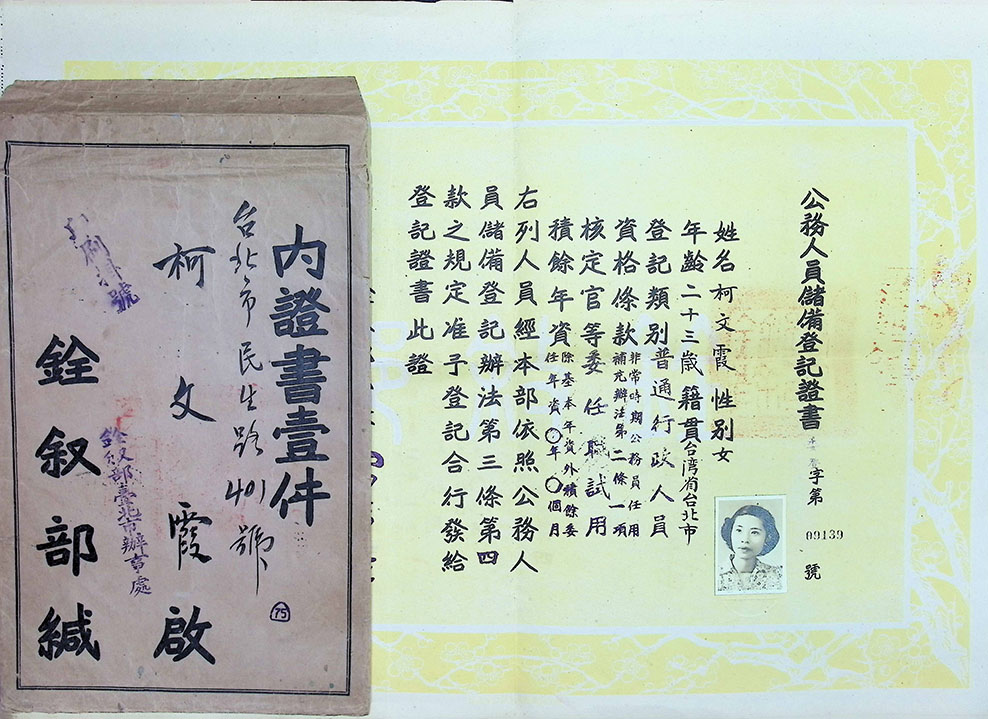 公務人員儲備登記證書
字第
09139
號
姓名柯文霞性別女
年齡二十三歲籍貫台灣省台北市
登記類別普通行政人員
資格條款非常時期公務員任用
補充辦法第二條一項
核定官等委任職試用
積餘年資除基本年資外積餘委
任年資〇年〇個月
右列人員經本部依照公務人
員儲備登記辦法第三條第四
款之規定准予登記合行發給
登記證書此證
內證書壹件
75
台北市民生路401號
柯文霞啟
銓敘部臺北市辦事處
號
銓敘部緘